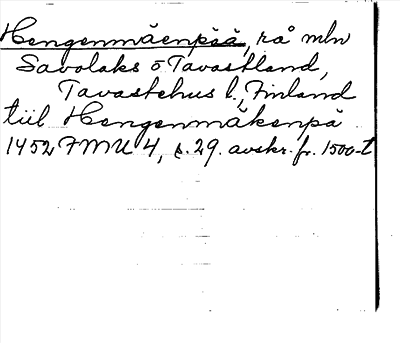 Hengenmäenpää, rå mln
Savolaks o Tavastland,
Tavastehus l., Finland
till Hengenmäkenpä
1452 FMU 4, s. 29. avskr. fr. 1500-t